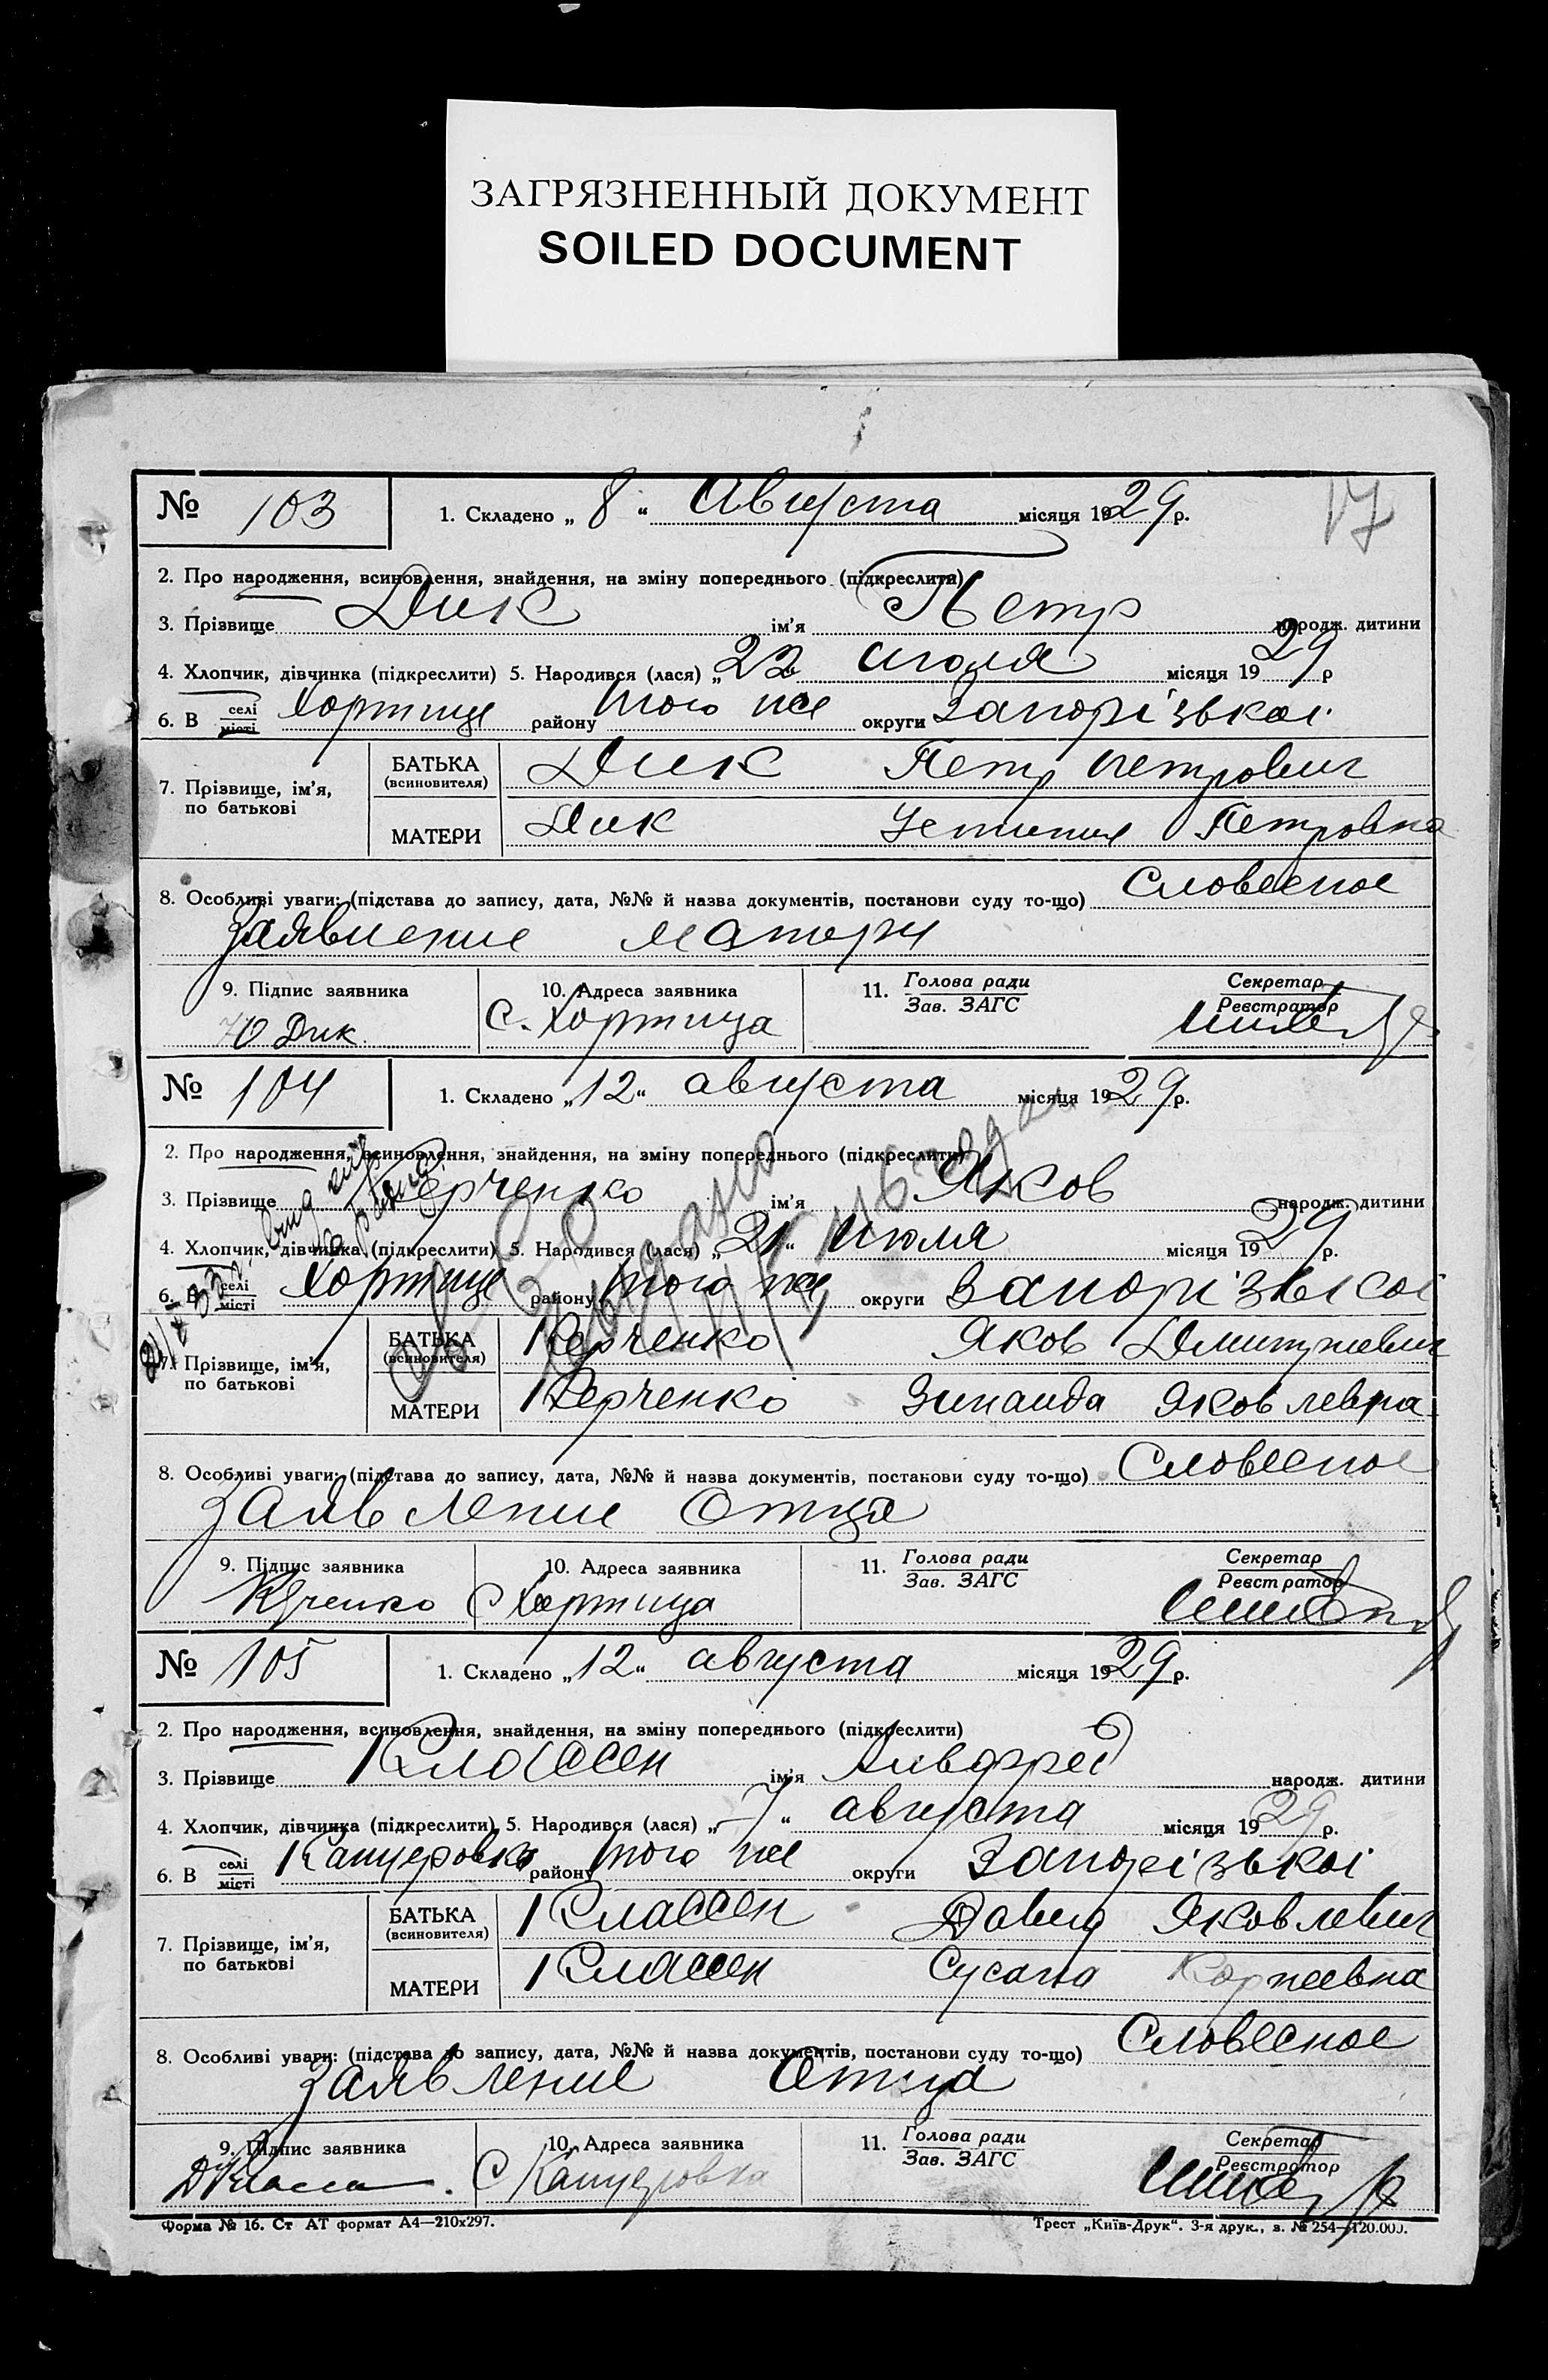 ЗАГРЯЗНЕННЫЙ ДОКУМЕНТ
SOILED DOCUMENT
17
№ 103 1. Складено „ 8 “ Августа місяця 1929 р.
2. Про народження, всиновлення, знайдення, на зміну попереднього (підкреслити)
3. Прізвище Дик ім'я Петр народж. дитини
4. Хлопчик, дівчинка (підкреслити) 5. Народився (лася) „22 июля місяця 1929 р
6. В селі місті Хортице району того же округи Запорізькоі
7. Прізвище, ім'я, по батькові
БАТЬКА (всиновителя) Дик Петр Петрович
МАТЕРИ Дик Петровна
8. Особливі уваги: (підстава до запису, дата, №№ й назва документів, постанови суду то-що) Словесное
Заявление матери
9. Підпис заявника 10. Адреса заявника 11. Голова ради Зав. ЗАГС Секретар Реєстратор
Дик С. Хортица
№ 104 1. Складено „12“ августа місяця 1929 р.
2. Про народження, всиновлення, знайдення, на зміну попереднього (підкреслити)
3. Прізвище Керченко ім'я Яков народж. дитини
4. Хлопчик, дівчинка (підкреслити) 5. Народився (лася) „21“ Июля місяця 1929 р.
6. В селі місті Хортице району того же округи Запорізькоі
7. Прізвище, ім'я, по батькові
БАТЬКА (всиновителя) Керченко Яков Дмитриевич
МАТЕРИ Керченко Зинаида Яковлевна
8. Особливі уваги: (підстава до запису, дата, №№ й назва документів, постанови суду то-що) Словесное
Заявление Отца
9. Підпис заявника 10. Адреса заявника 11. Голова ради Зав. ЗАГС Секретар Реєстратор
С Хортица
№ 105 1. Складено „12“ августа місяця 1929 р.
2. Про народження, всиновлення, знайдення, на зміну попереднього (підкреслити)
3. Прізвище Классен ім'я Альфред народж. дитини
4. Хлопчик, дівчинка (підкреслити) 5. Народився (лася) „7“ августа місяця 1929 р.
6. В селі місті Канцеровка району того же округи Запорізькоі
7. Прізвище, ім'я, по батькові
БАТЬКА (всиновителя) Классен Давид Яковлевич
МАТЕРИ Классен Сусана Корнеевна
8. Особливі уваги: (підстава до запису, дата, №№ й назва документів, постанови суду то-що) Словесное
Заявление Отца
9. Підпис заявника 10. Адреса заявника 11. Голова ради Зав. ЗАГС Секретар Реєстратор
С Канцеровка
Форма № 16. Ст АТ формат А4—210х297. Трест „Київ-Друк“. 3-я друк., з. № 254—120.000.